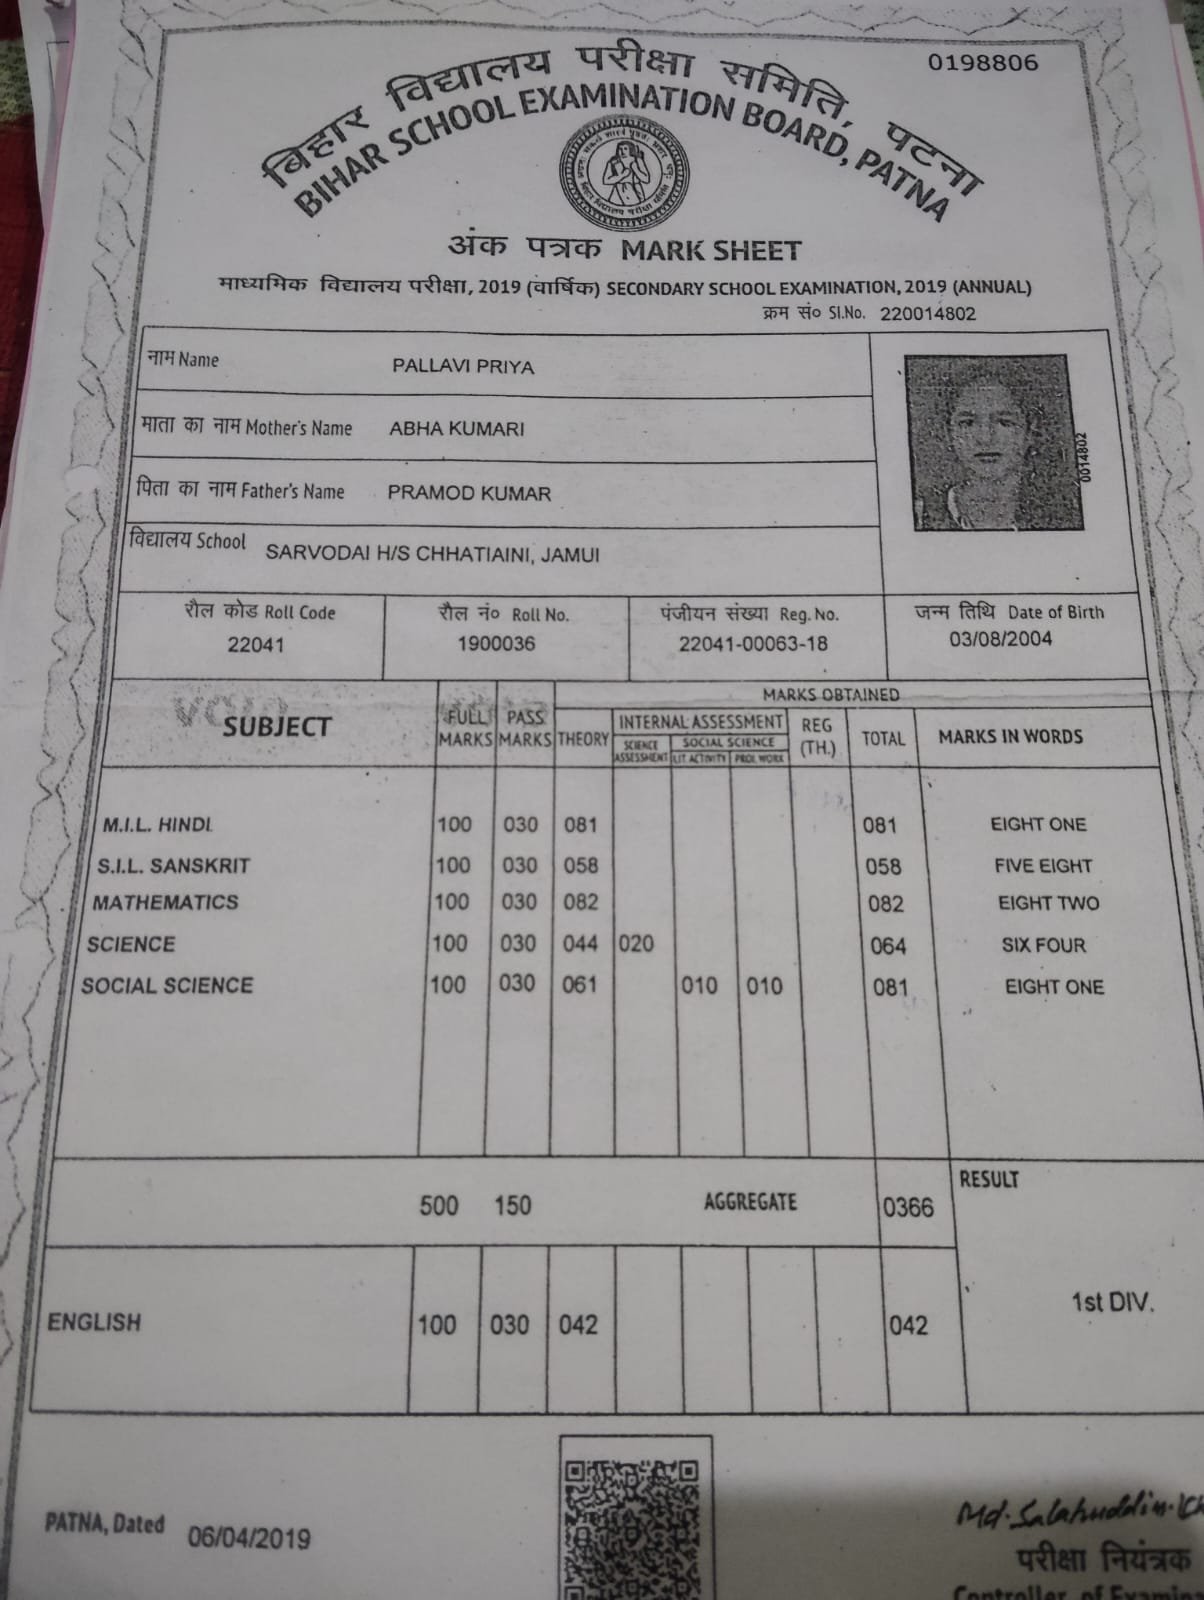 0198806
बिहार विद्यालय परीक्षा समिति, पटना
BIHAR SCHOOL EXAMINATION BOARD, PATNA
अंक पत्रक MARK SHEET
माध्यमिक विद्यालय परीक्षा, 2019 (वार्षिक) SECONDARY SCHOOL EXAMINATION, 2019 (ANNUAL)
क्रम सं० Sl.No. 220014802
नाम Name PALLAVI PRIYA
माता का नाम Mother's Name ABHA KUMARI
0014802
पिता का नाम Father's Name PRAMOD KUMAR
विद्यालय School SARVODAI H/S CHHATIAINI, JAMUI
रौल कोड Roll Code रौल नं० Roll No. पंजीयन संख्या Reg. No. जन्म तिथि Date of Birth
22041 1900036 22041-00063-18 03/08/2004
VOID
MARKS OBTAINED
SUBJECT FULL MARKS PASS MARKS THEORY INTERNAL ASSESSMENT REG (TH.) TOTAL MARKS IN WORDS
SCIENCE ASSESSMENT SOCIAL SCIENCE
LIT. ACTIVITY PROJ. WORK
M.I.L. HINDI 100 030 081 081 EIGHT ONE
S.I.L. SANSKRIT 100 030 058 058 FIVE EIGHT
MATHEMATICS 100 030 082 082 EIGHT TWO
SCIENCE 100 030 044 020 064 SIX FOUR
SOCIAL SCIENCE 100 030 061 010 010 081 EIGHT ONE
500 150 AGGREGATE 0366 RESULT
1st DIV.
ENGLISH 100 030 042 042
PATNA, Dated 06/04/2019
Md. Salahuddin
परीक्षा नियंत्रक
Controller of